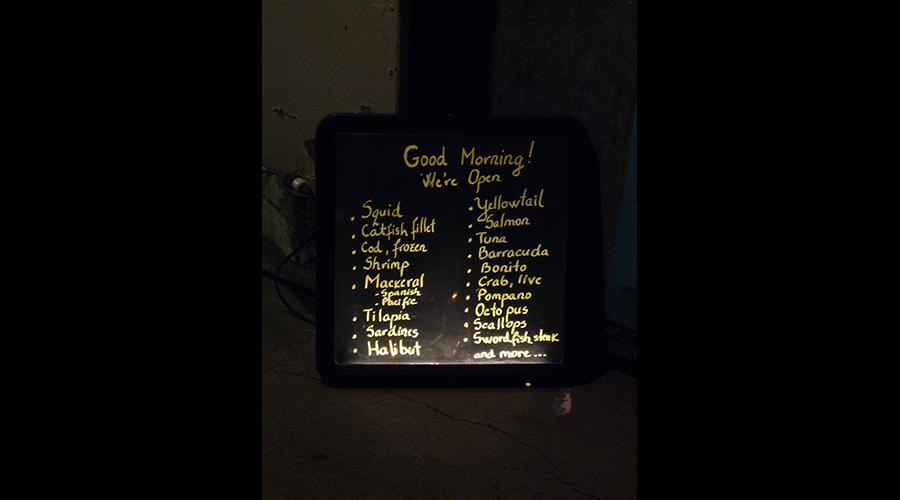 Good Morning!
We're Open
• Squid
• Catfish fillet
• Cod, frozen
• Shrimp
• Mackeral
- Spanish
- Pacific
• Tilapia
• Sardines
• Halibut
• Yellowtail
• Salmon
• Tuna
• Barracuda
• Bonito
• Crab, live
• Pompano
• Octopus
• Scallops
• Swordfish steak
and more...